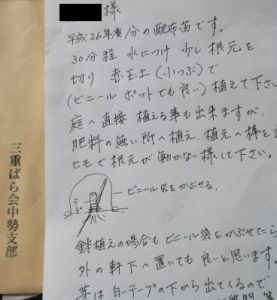 様
平成26年度分の配布苗です。
30分程 水につけ 少し根元を
切り 赤玉土(小っぶ)で
(ビニールポットでも良い)植えて下さい
庭へ直接 植える事も出来ますが
肥料の無い所へ植え、植え
ヒモで根元が動かない様して下さい。
ビニール袋をかぶせる。
鉢植えの場合も ビニール袋をかぶせたら
外の軒下へ置いても 良いと思います。
芽は白いテープの下から出てくるので
三重ばら会中勢支部